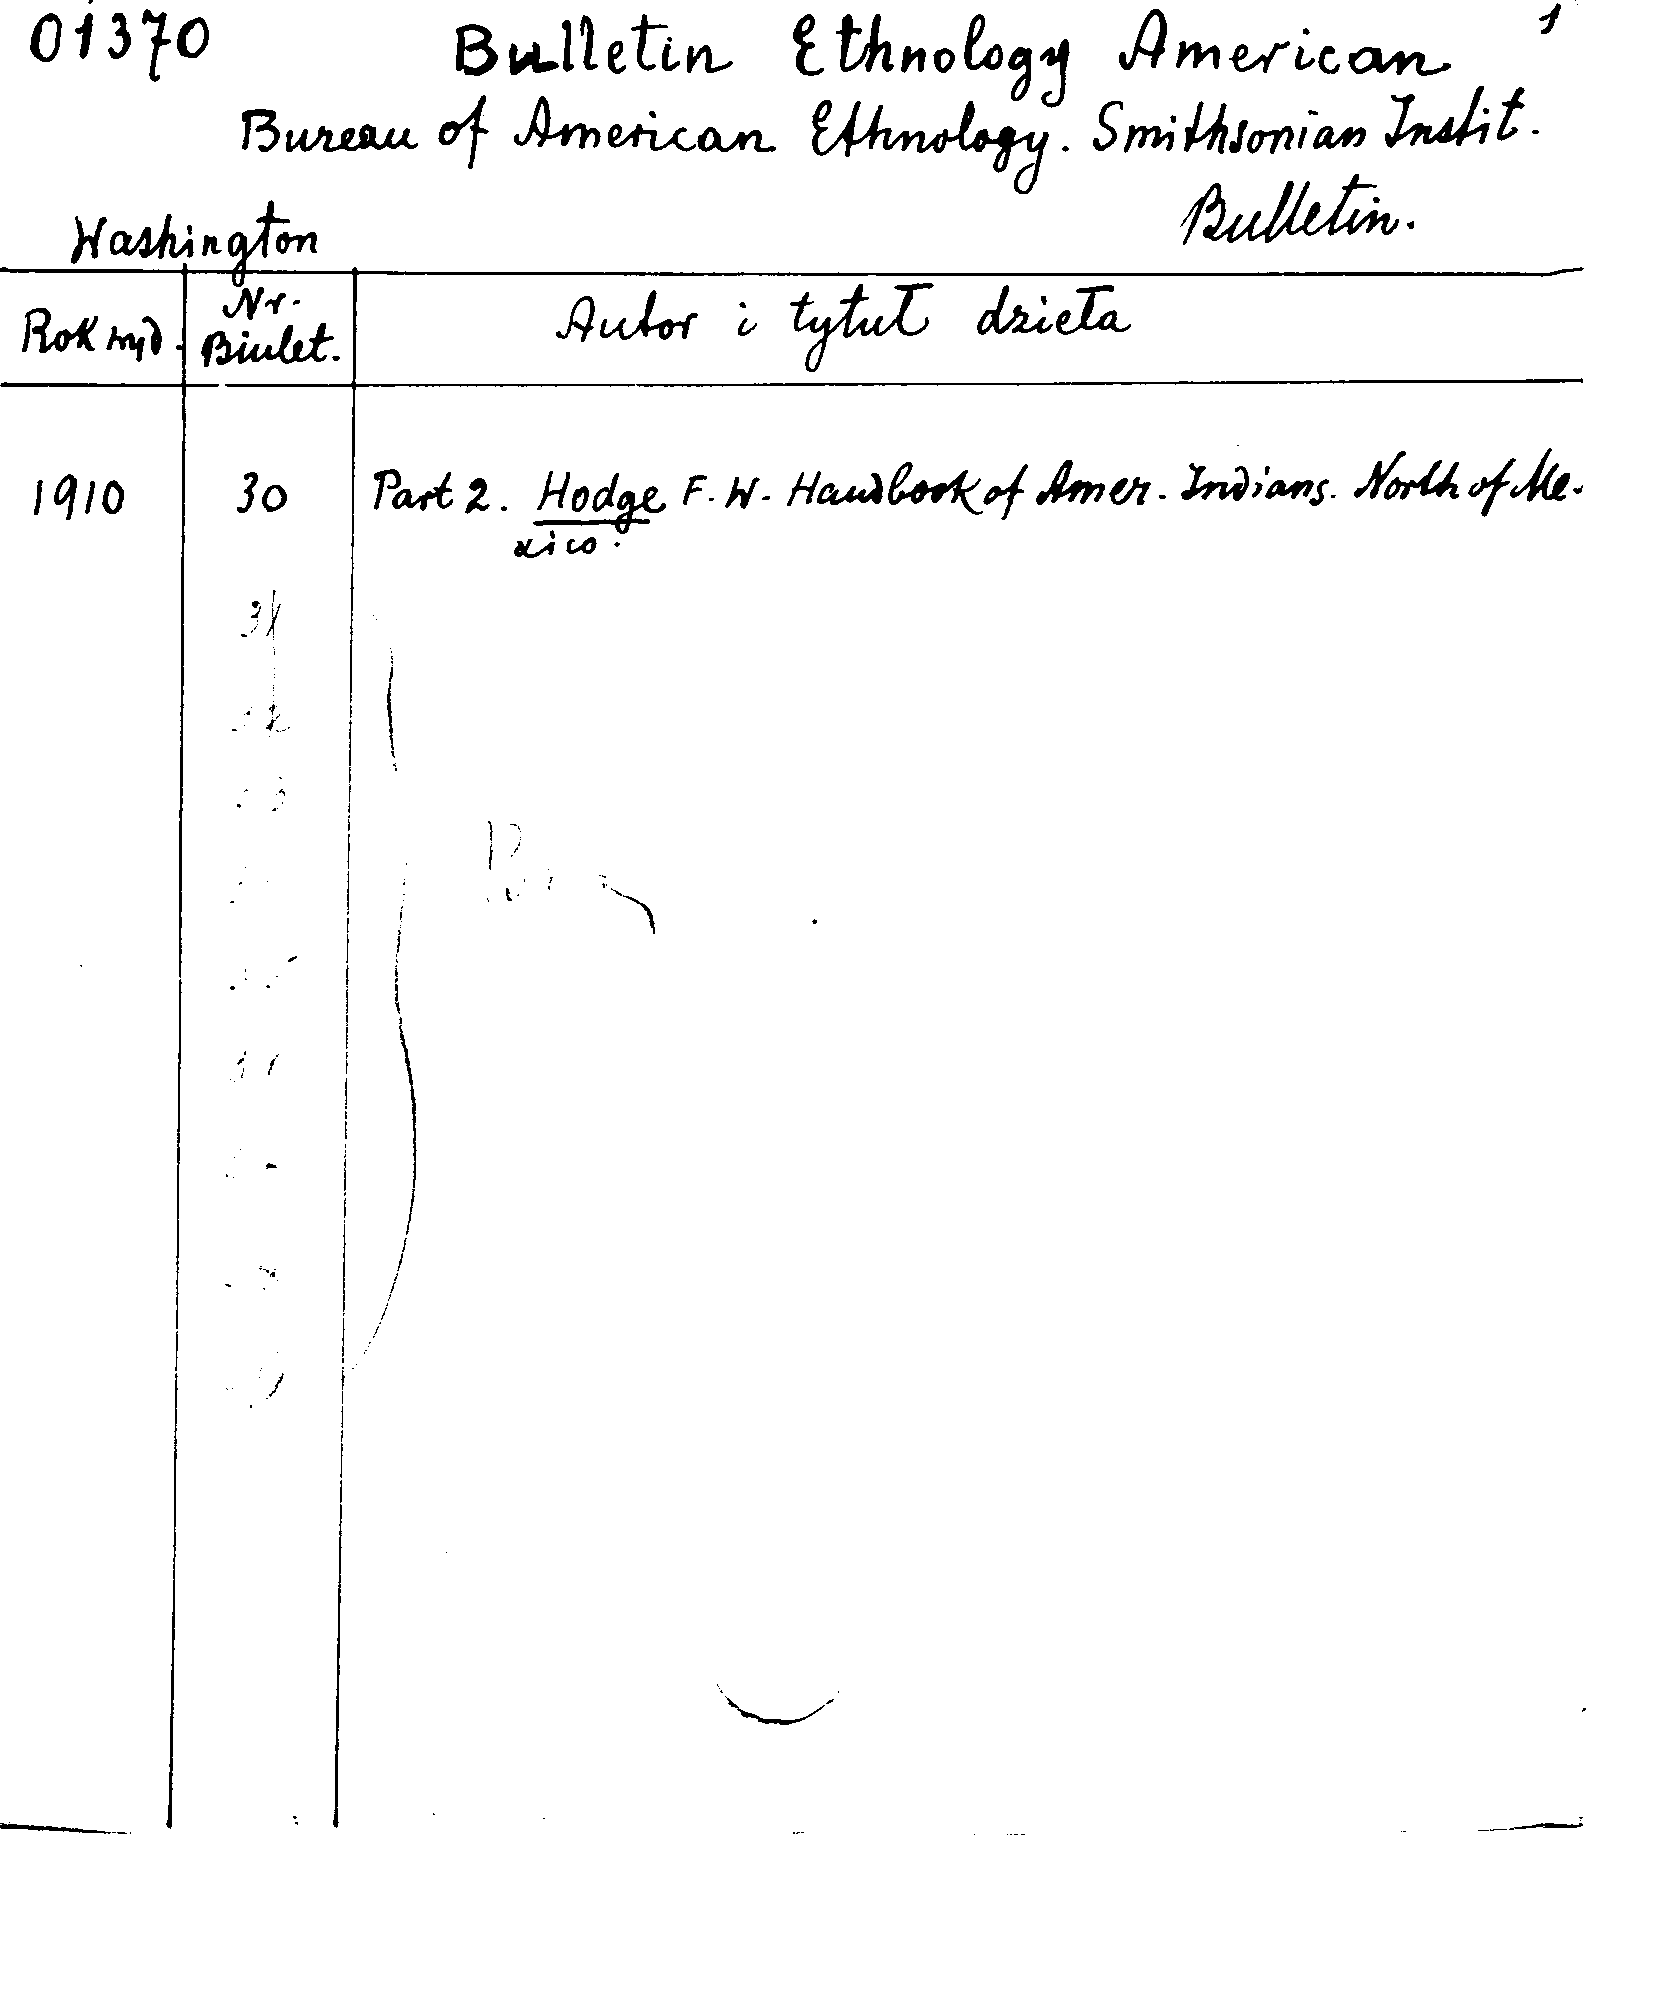 01370 Bulletin Ethnology American 1
Bureau of American Ethnology. Smithsonian Instit.
Bulletin.
Washington
Rok wyd. Nr. Biulet. Autor i tytuł dzieła
1910 30 Part 2. Hodge F. W. Handbook of Amer. Indians. North of Me-
xico.
31